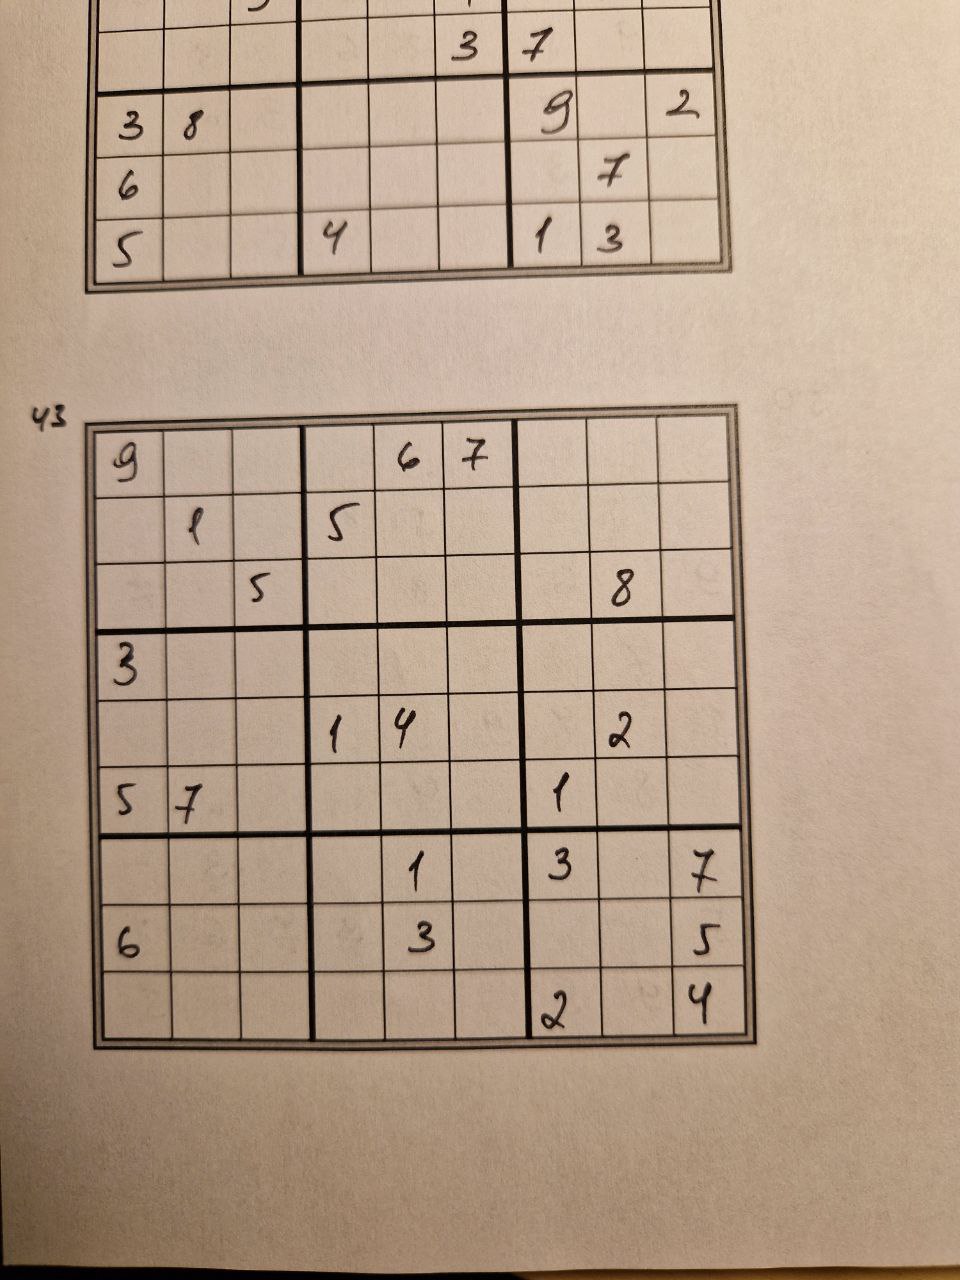 3 7
3 8 9 2
6 7
5 4 1 3
43
9 6 7
1 5
5 8
3
1 4 2
5 7 1
1 3 7
6 3 5
2 4